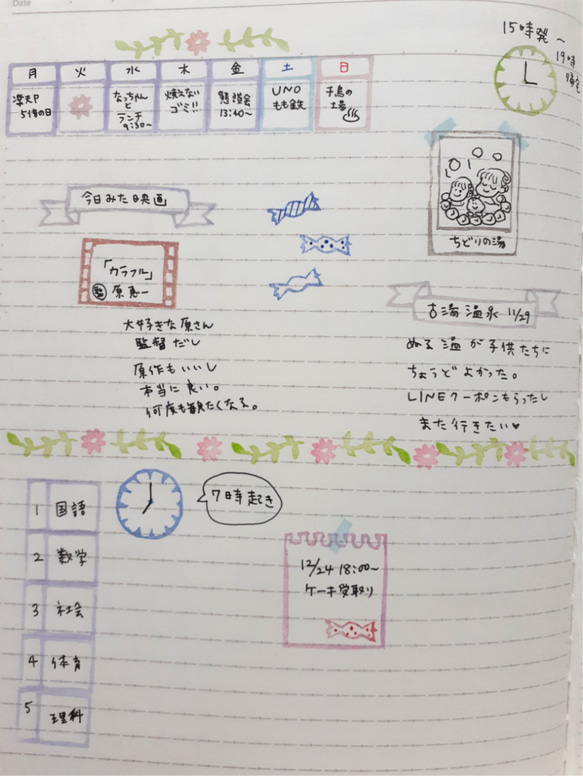 Date
15時発〜
19時
帰宅
月 火 水 木 金 土 日
楽天P
5倍の日
なっちゃん
と
ランチ
9:30〜
燃えない
ゴミ!!
懇談会
13:40〜
UNO
もも鉄
千鳥の
湯
今日みた映画
「カラフル」
監 原恵一
大好きな原さん
監督だし
原作もいいし
本当に良い。
何度も観たくなる。
ちどりの湯
古湯温泉 11/29
ぬる湯が子供たちに
ちょうどよかった。
LINEクーポンもらったし
また行きたい♥
1 国語
2 数学
3 社会
4 体育
5 理科
7時起き
12/24 18:00〜
ケーキ受取り